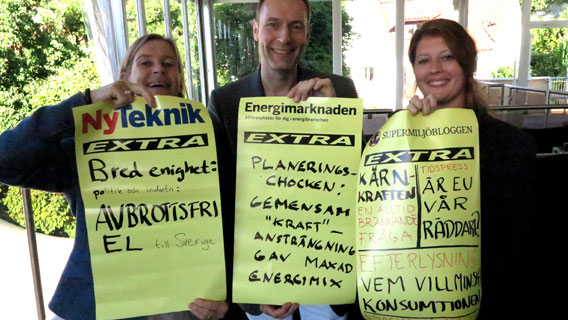 NyTeknik
EXTRA
Bred enighet:
politik och industri:
AVBROTTSFRI
EL till Sverige
Energimarknaden
Affärsnyheter för dig i energibranschen
EXTRA
PLANERINGS-
CHOCKEN:
GEMENSAM
"KRAFT"-
ANSTRÄNGNING
GAV MAXAD
ENERGIMIX
SUPERMILJÖBLOGGEN
EXTRA
KÄRN-
KRAFTEN
EN ALLTID
BRÄNNANDE
FRÅGA
TIDSPRESS
ÄR EU
VÅR
RÄDDARE?
EFTERLYSNING
VEM VILL MINSKA
KONSUMTIONEN